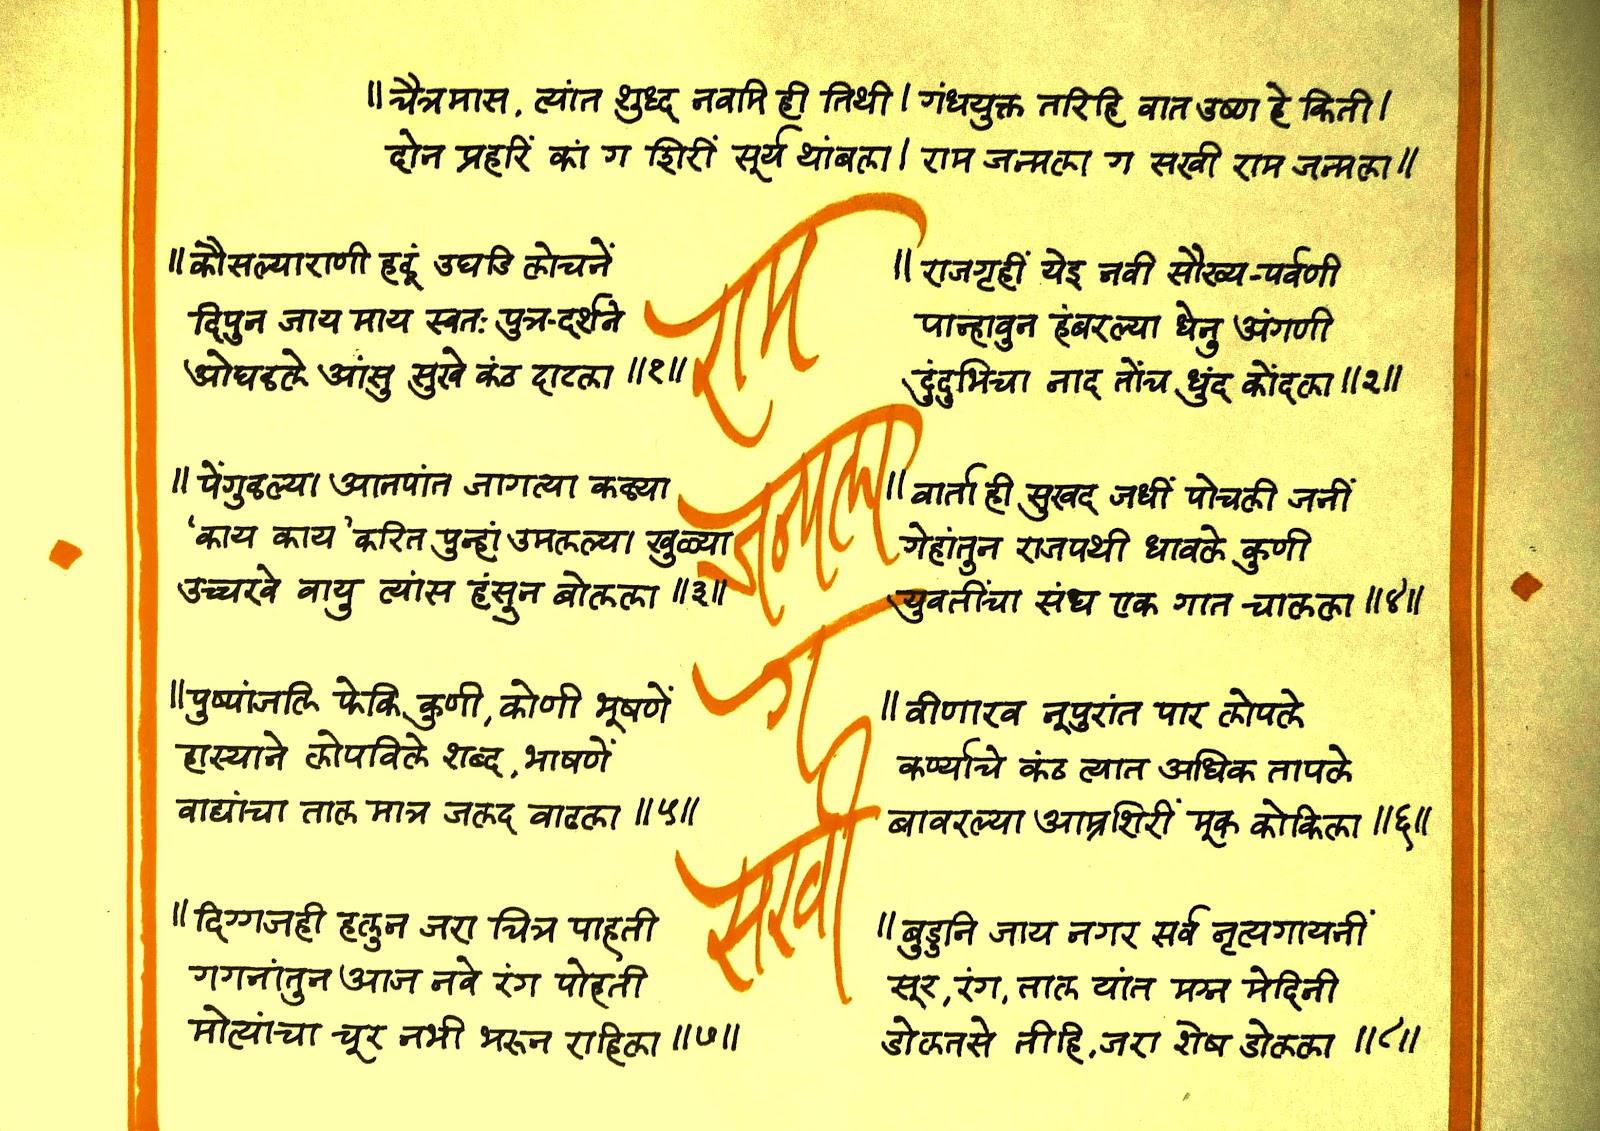 ॥ चैत्रमास, त्यांत शुध्द नवमि ही तिथी । गंधयुक्त तरिहि वात उष्ण हे किती ।
दोन प्रहरिं कां ग शिरीं सूर्य थांबला । राम जन्मला ग सखी राम जन्मला ॥
॥ कौसल्याराणी हळूं उघडि लोचनें
दिपुन जाय माय स्वतः पुत्र-दर्शने
ओघळले आंसु सुखे कंठ दाटला ॥१॥
॥ राजगृहीं येइ नवी सौख्य-पर्वणी
पान्हावुन हंबरल्या धेनु अंगणी
दुंदुभिचा नाद तोंच धुंद कोंदला ॥२॥
राम
जन्मला
ग
सखी
॥ पेंगुळल्या आतपांत जागत्या कळ्या
'काय काय' करित पुन्हां उमलल्या खुळ्या
उच्चरवे वायु त्यांस हंसुन बोलला ॥३॥
॥ वार्ता ही सुखद जधीं पोचली जनीं
गेहांतुन राजपथी धावले कुणी
युवतींचा संघ एक गात चालला ॥४॥
॥ पुष्पांजलि फेकि कुणी, कोणी भूषणें
हास्याने लोपविले शब्द, भाषणें
वाद्यांचा ताल मात्र जलद वाढला ॥५॥
॥ वीणारव नूपुरांत पार लोपले
कर्ण्याचे कंठ त्यात अधिक तापले
बावरल्या आम्रशिरीं मूक कोकिला ॥६॥
॥ दिग्गजही हलुन जरा चित्र पाहती
गगनांतुन आज नवे रंग पोहती
मोत्यांचा चूर नभी भरून राहिला ॥७॥
॥ बुडुनि जाय नगर सर्व नृत्यगायनीं
सूर, रंग, ताल यांत मग्न मेदिनी
डोलतसे तीहि, जरा शेष डोलला ॥८॥